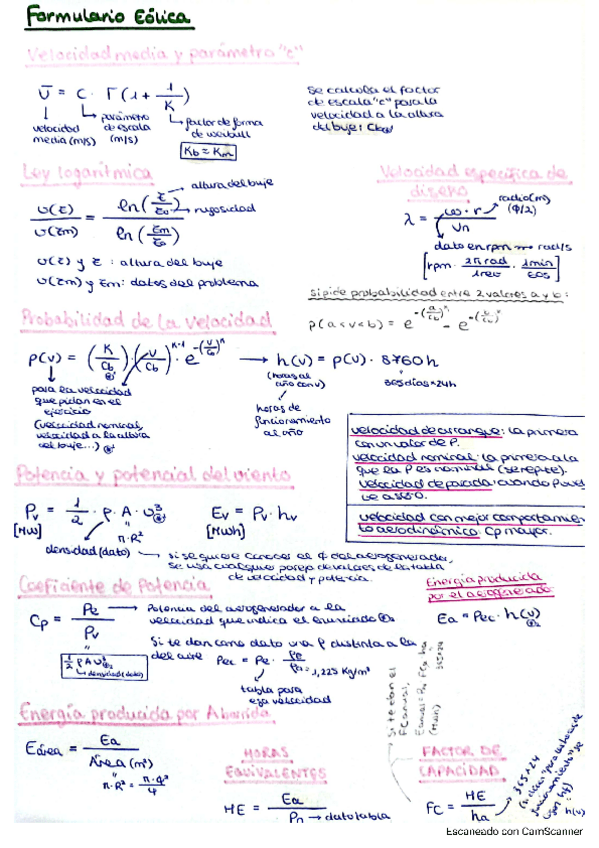 Formulario Eólica
Velocidad media y parámetro "c"
v̄ = C · Γ(1 + 1/K)
velocidad media (m/s)
parámetro de escala (m/s)
factor de forma de weibull
Kb = Km
se calcula el factor
de escala "c" para la
velocidad a la altura
del buje: Cb
Ley logarítmica
v(z)/v(zm) = ln(z/z₀)/ln(zm/z₀)
altura del buje
rugosidad
v(z) y z : altura del buje
v(zm) y zm : datos del problema
Velocidad específica de
diseño
λ = ω · r / Vn
radio (m)
(Φ/2)
dato en rpm → rad/s
[rpm · 2π rad/1 rev · 1 min/60s]
si pide probabilidad entre 2 valores a y b:
p(a<v<b) = e^-(a/Cb)^K - e^-(b/Cb)^K
Probabilidad de la velocidad
p(v) = (K/Cb) · (v/Cb)^K-1 · e^-(v/Cb)^K → h(v) = p(v) · 8760h
(horas al
año con v)
365 días × 24h
para la velocidad
que pidan en el
ejercicio
(velocidad nominal,
velocidad a la altura
del buje...)
horas de
funcionamiento
al año
velocidad de arranque: la primera
con valor de P.
velocidad nominal: la primera a la
que la P es nominal (se repite).
velocidad de parada: cuando P vuelve a 0.
velocidad con mejor comportamiento
aerodinámico: Cp mayor.
Potencia y potencial del viento
Pv = 1/2 · ρ · A · v³
[MW]
π·R²
densidad (dato)
Ev = Pv · hv
[MWh]
si se quiere conocer el Φ del aerogenerador,
se usa cualquier pareja de valores de la tabla
de velocidad y potencia.
Coeficiente de Potencia
Cp = Pe/Pv
1/2 ρ A v³
densidad (dato)
Potencia del aerogenerador a la
velocidad que indica el enunciado
Si te dan como dato una ρ distinta a la
del aire
Pec = Pe · ρc/ρa = 1,225 Kg/m³
tabla para
esa velocidad
Energía producida
por el aerogenerador
Ea = Pec · h(v)
Energía producida por Área
Eárea = Ea/Área (m²)
π·R² = π·Φ²/4
HORAS
EQUIVALENTES
HE = Ea/Pn → dato tabla
Si te dan el
FC anual,
Eanual = Pn · FC · ha
(MWh)
365×24
FACTOR DE
CAPACIDAD
FC = HE/ha
365×24
h(v)
Escaneado con CamScanner